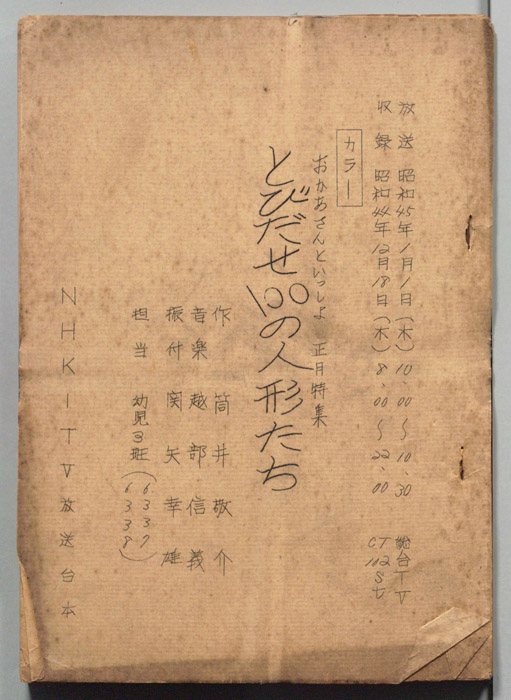 放送 昭和45年1月1日(木) 10、00〜10、30 総合TV
収録 昭和44年12月18日(木) 8、00〜22、00 CT112SV
カラー
おかあさんといっしょ 正月特集
とびだせ100の人形たち
作 筒井敬介
音楽 越部信義
振付 関矢幸雄
担当 幼児3班(6337
6339)
NHK-TV放送台本